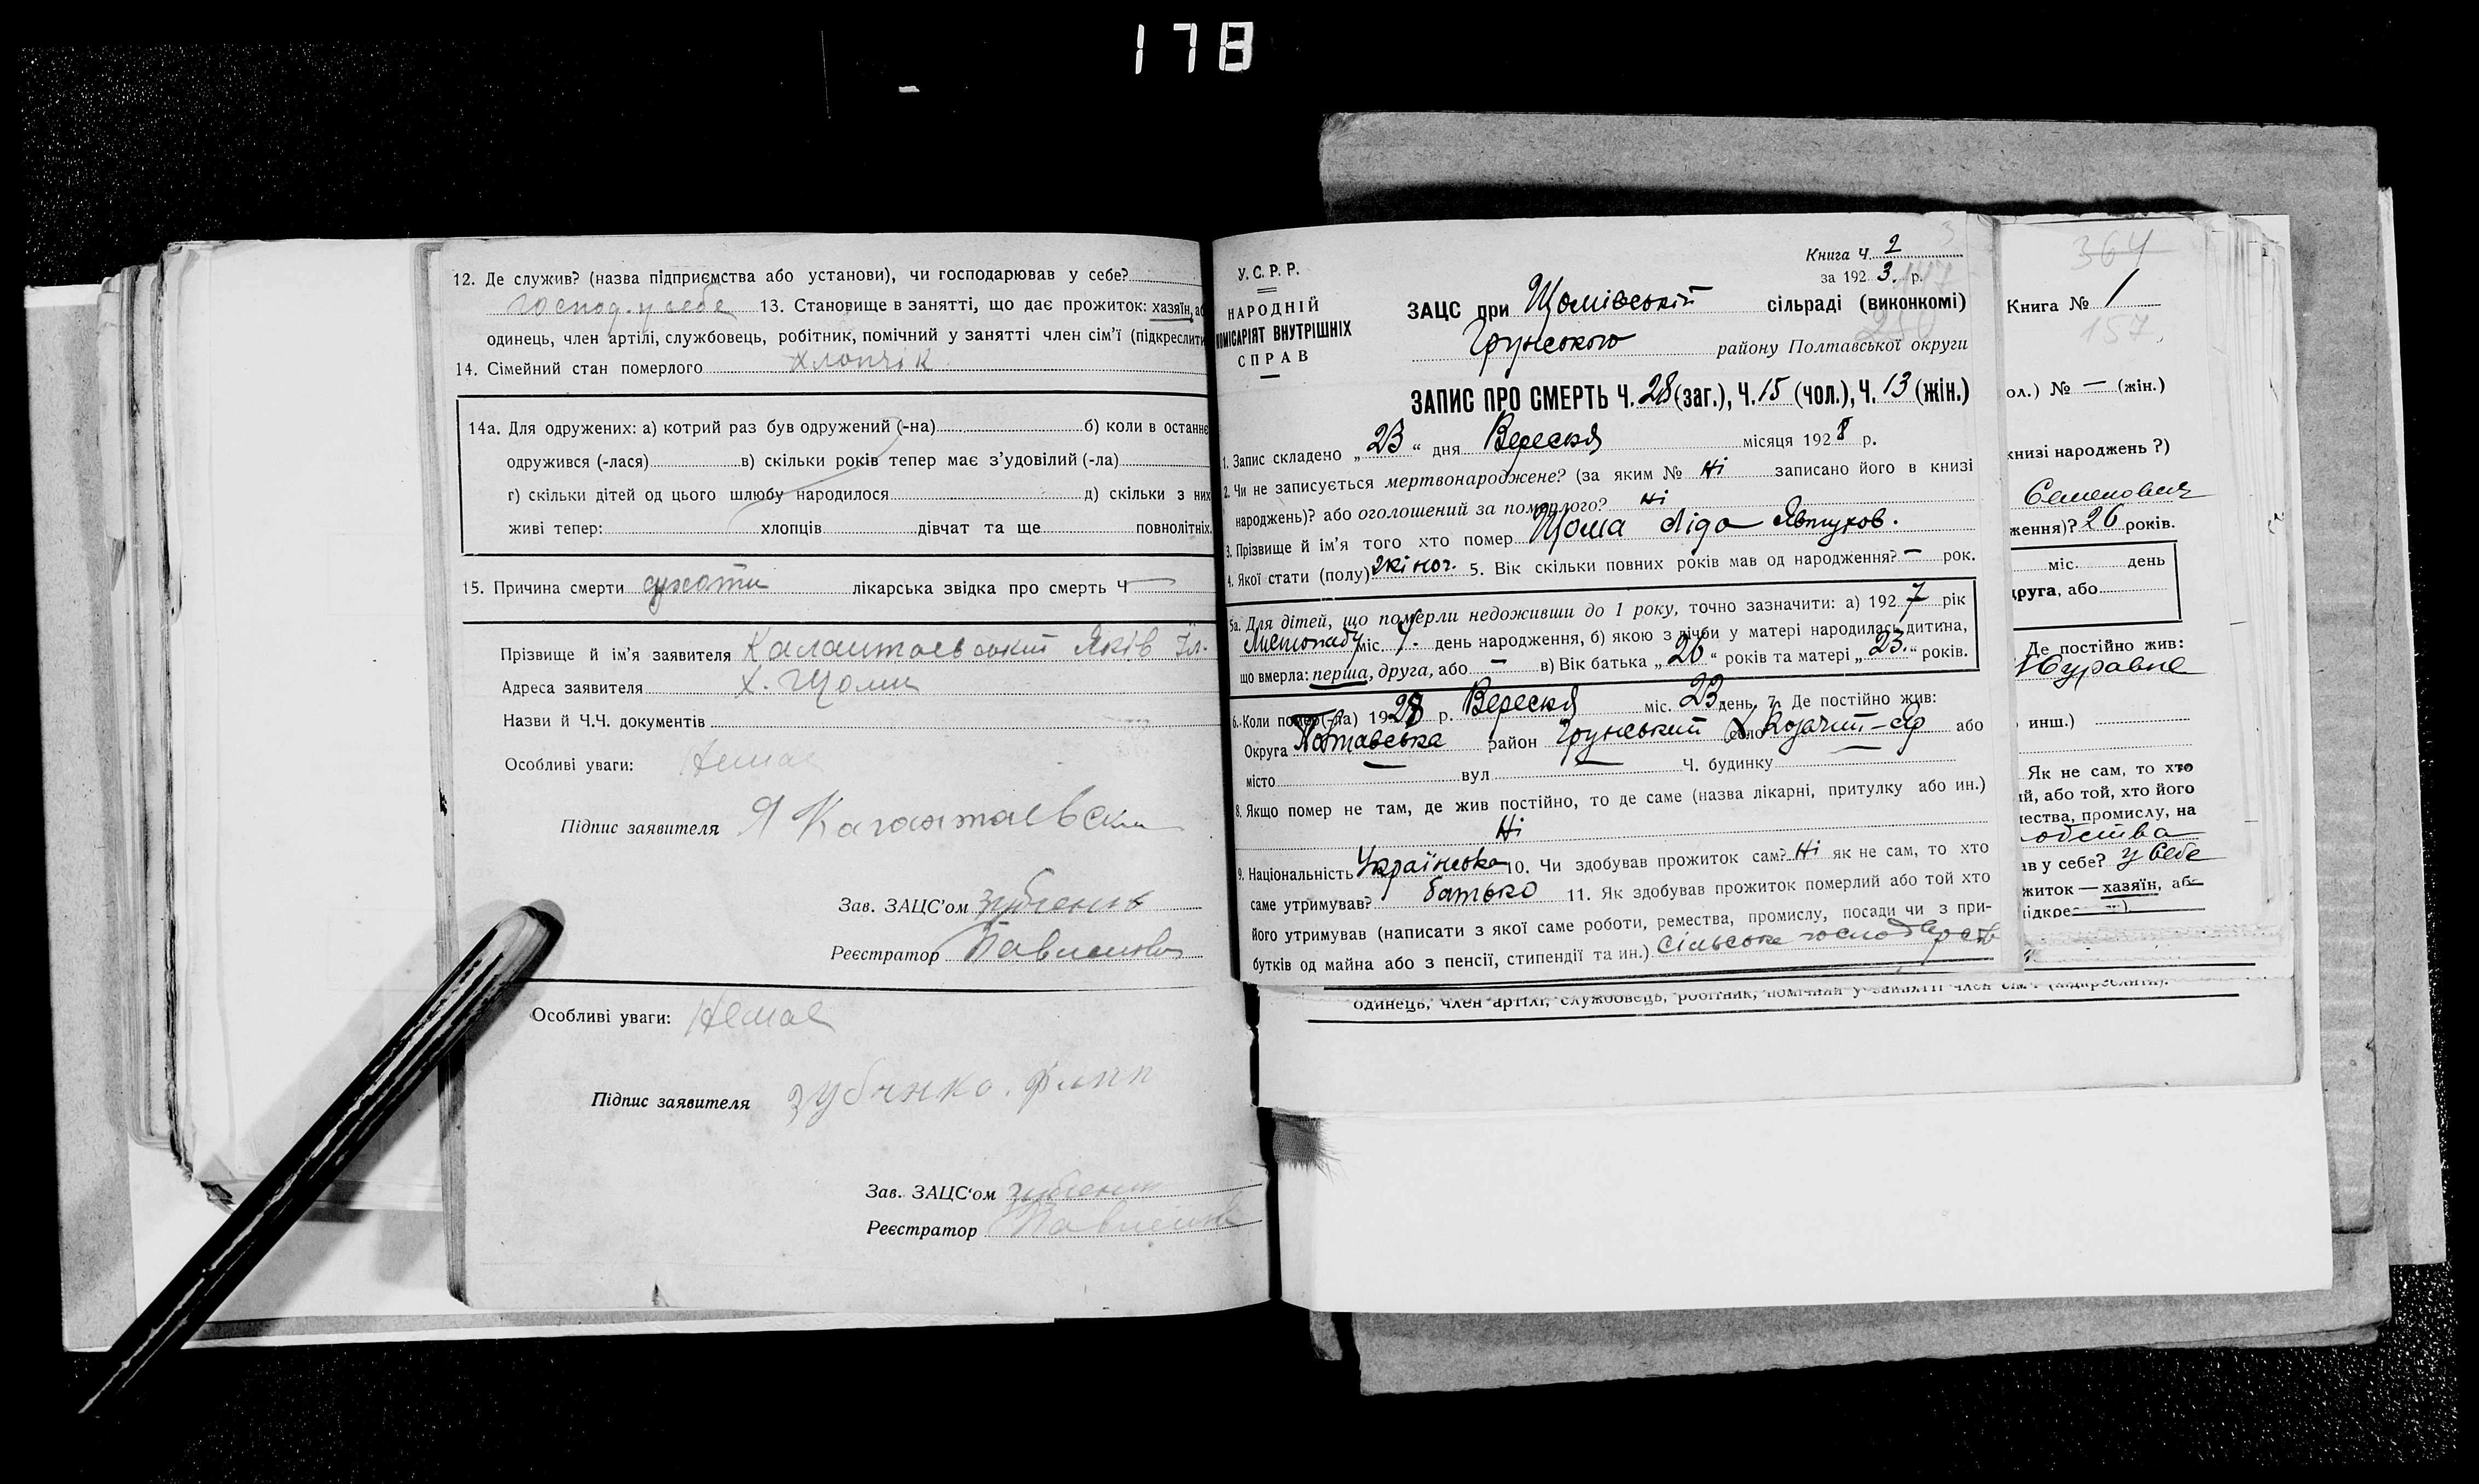 178
12. Де служив? (назва підприємства або установи), чи господарював у себе?
господ. у себе 13. Становище в занятті, що дає прожиток: хазяїн, аб
одинець, член артілі, службовець, робітник, помічний у занятті член сім'ї (підкреслити
14. Сімейний стан померлого хлопчік
14а. Для одружених: а) котрий раз був одружений (-на) б) коли в останнє
одружився (-лася) в) скільки років тепер має з'удовілий (-ла)
г) скільки дітей од цього шлюбу народилося д) скільки з них
живі тепер: хлопців дівчат та ще повнолітніх.
15. Причина смерти сухоти лікарська звідка про смерть Ч —
Прізвище й ім'я заявителя Калаштаєвський Яків Іл.
Адреса заявителя х. Щоми
Назви й Ч.Ч. документів
Особливі уваги: Немає
Підпис заявителя Я
Зав. ЗАЦС'ом
Реєстратор
Особливі уваги: Немає
Підпис заявителя
Зав. ЗАЦС'ом
Реєстратор
У. С. Р. Р.
НАРОДНІЙ
КОМІСАРІЯТ ВНУТРІШНІХ
СПРАВ
Книга Ч. 2
за 192 3. р.
ЗАЦС при Щомівській сільраді (виконкомі)
Грунського району Полтавської округи
ЗАПИС ПРО СМЕРТЬ Ч. 28 (заг.), Ч. 15 (чол.), Ч. 13 (жін.)
1. Запис складено „ 23 “ дня Вересня місяця 192 8 р.
2. Чи не записується мертвонароджене? (за яким № Ні записано його в книзі
народжень)? або оголошений за померлого? Ні
3. Прізвище й ім'я того хто помер Щома Ліда Явтухов.
4. Якої стати (полу) жіноч. 5. Вік скільки повних років мав од народження? — рок.
5а. Для дітей, що померли недоживши до 1 року, точно зазначити: а) 192 7 рік
Листопаду міс. день народження, б) якою з лічби у матері народилась дитина,
що вмерла: перша, друга, або — в) Вік батька „ 26 “ років та матері „ 23. “ років.
6. Коли помер (-ла) 19 28 р. Вересня міс. 23 день. 7. Де постійно жив:
Округа Полтавська район Грунський село х Козачий-Яр або
місто вул Ч. будинку
8. Якщо помер не там, де жив постійно, то де саме (назва лікарні, притулку або ин.)
Ні
9. Національність Українська 10. Чи здобував прожиток сам? Ні як не сам, то хто
саме утримував? батько 11. Як здобував прожиток померлий або той хто
його утримував (написати з якої саме роботи, ремества, промислу, посади чи з при-
бутків од майна або з пенсії, стипендії та ин.) Сільське господарств
одинець, член артілі, службовець, робітник, помічний у занятті член сім'ї (підкреслити).
364
Книга № 1
157.
ол.) № — (жін.)
книзі народжень ?)
Семенович
ження)? 26 років.
міс. день
друга, або
Де постійно жив:
инш.)
Як не сам, то хто
ий, або той, хто його
ества, промислу, на
ав у себе? у себе
житок — хазяїн, або